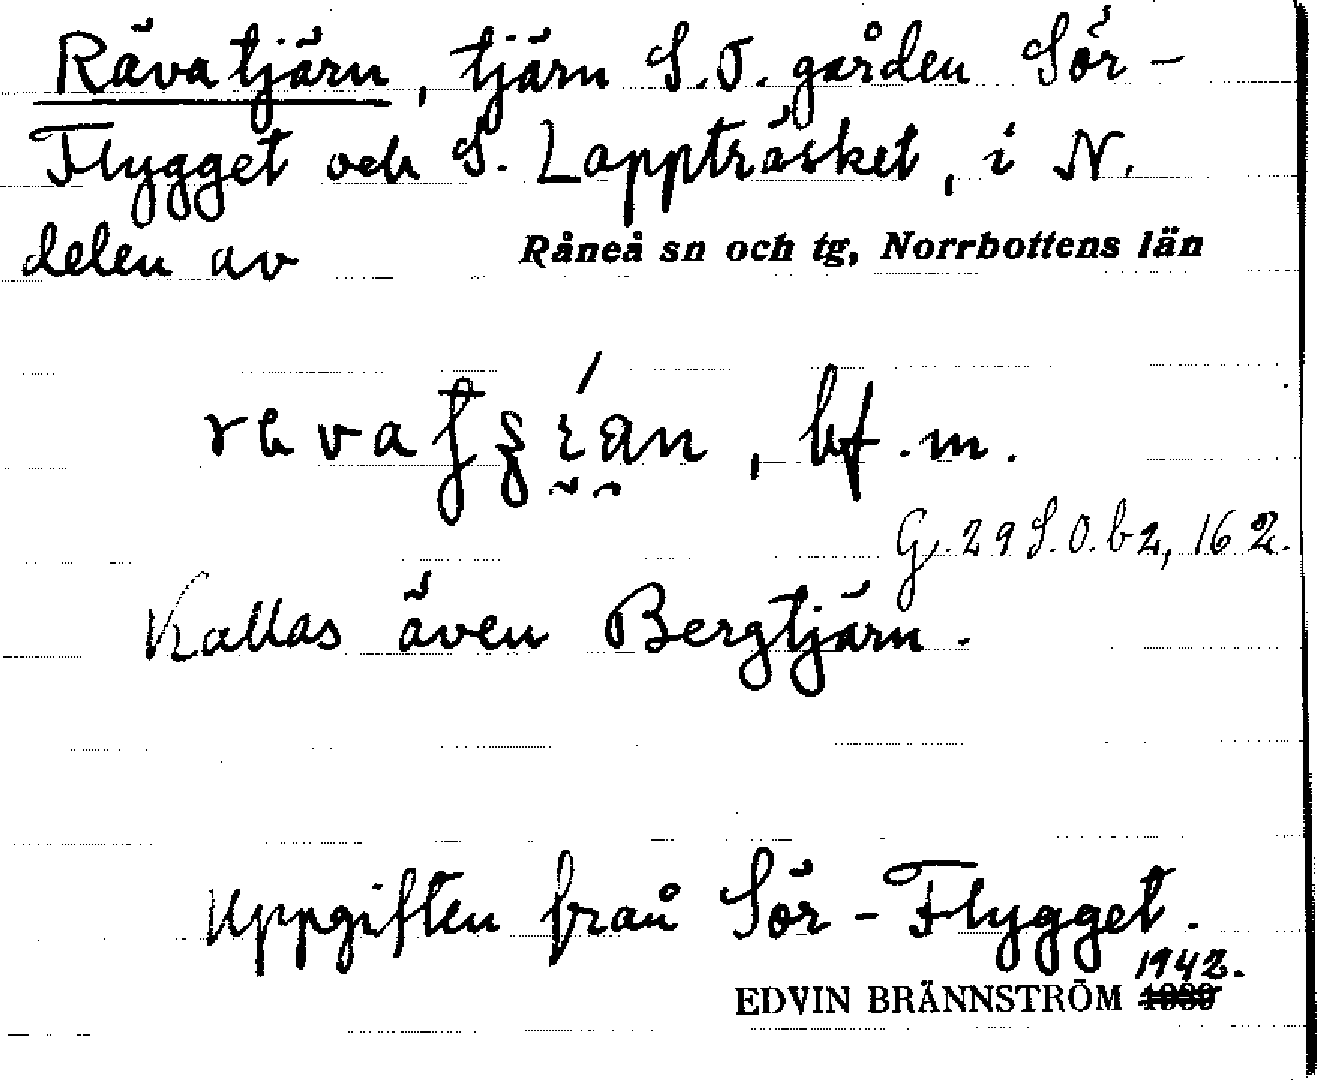 Rävatjärn, tjärn S.O. gården Sör-
Flygget och S. Lappträsket, i N.
delen av Råneå sn och tg, Norrbottens län
, bf. m.
G. 29 S.O. b2, 162.
Kallas även Bergtjärn.
Uppgiften från Sör-Flygget.
1942.
EDVIN BRÄNNSTRÖM